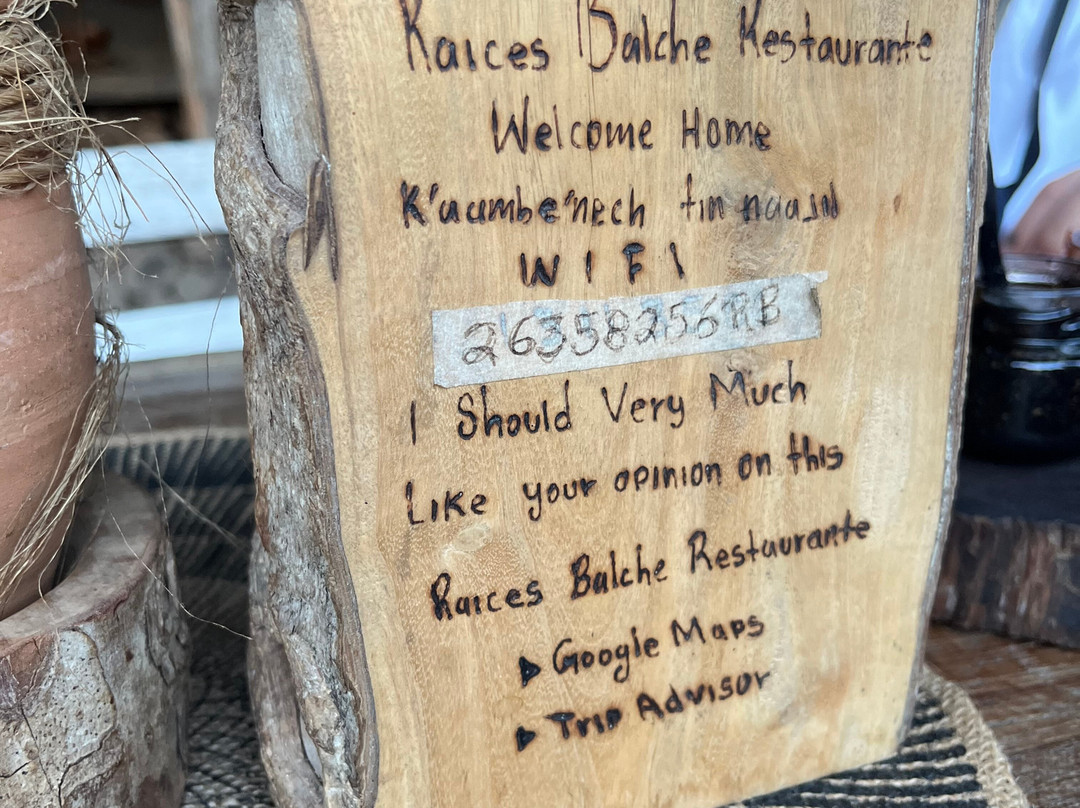 Raices Balche Restaurante
Welcome Home
K'aambe'nech tin naajil
WIFI
26358256RB
I Should Very Much
Like your opinion on this
Raices Balche Restaurante
Google Maps
Trip Advisor